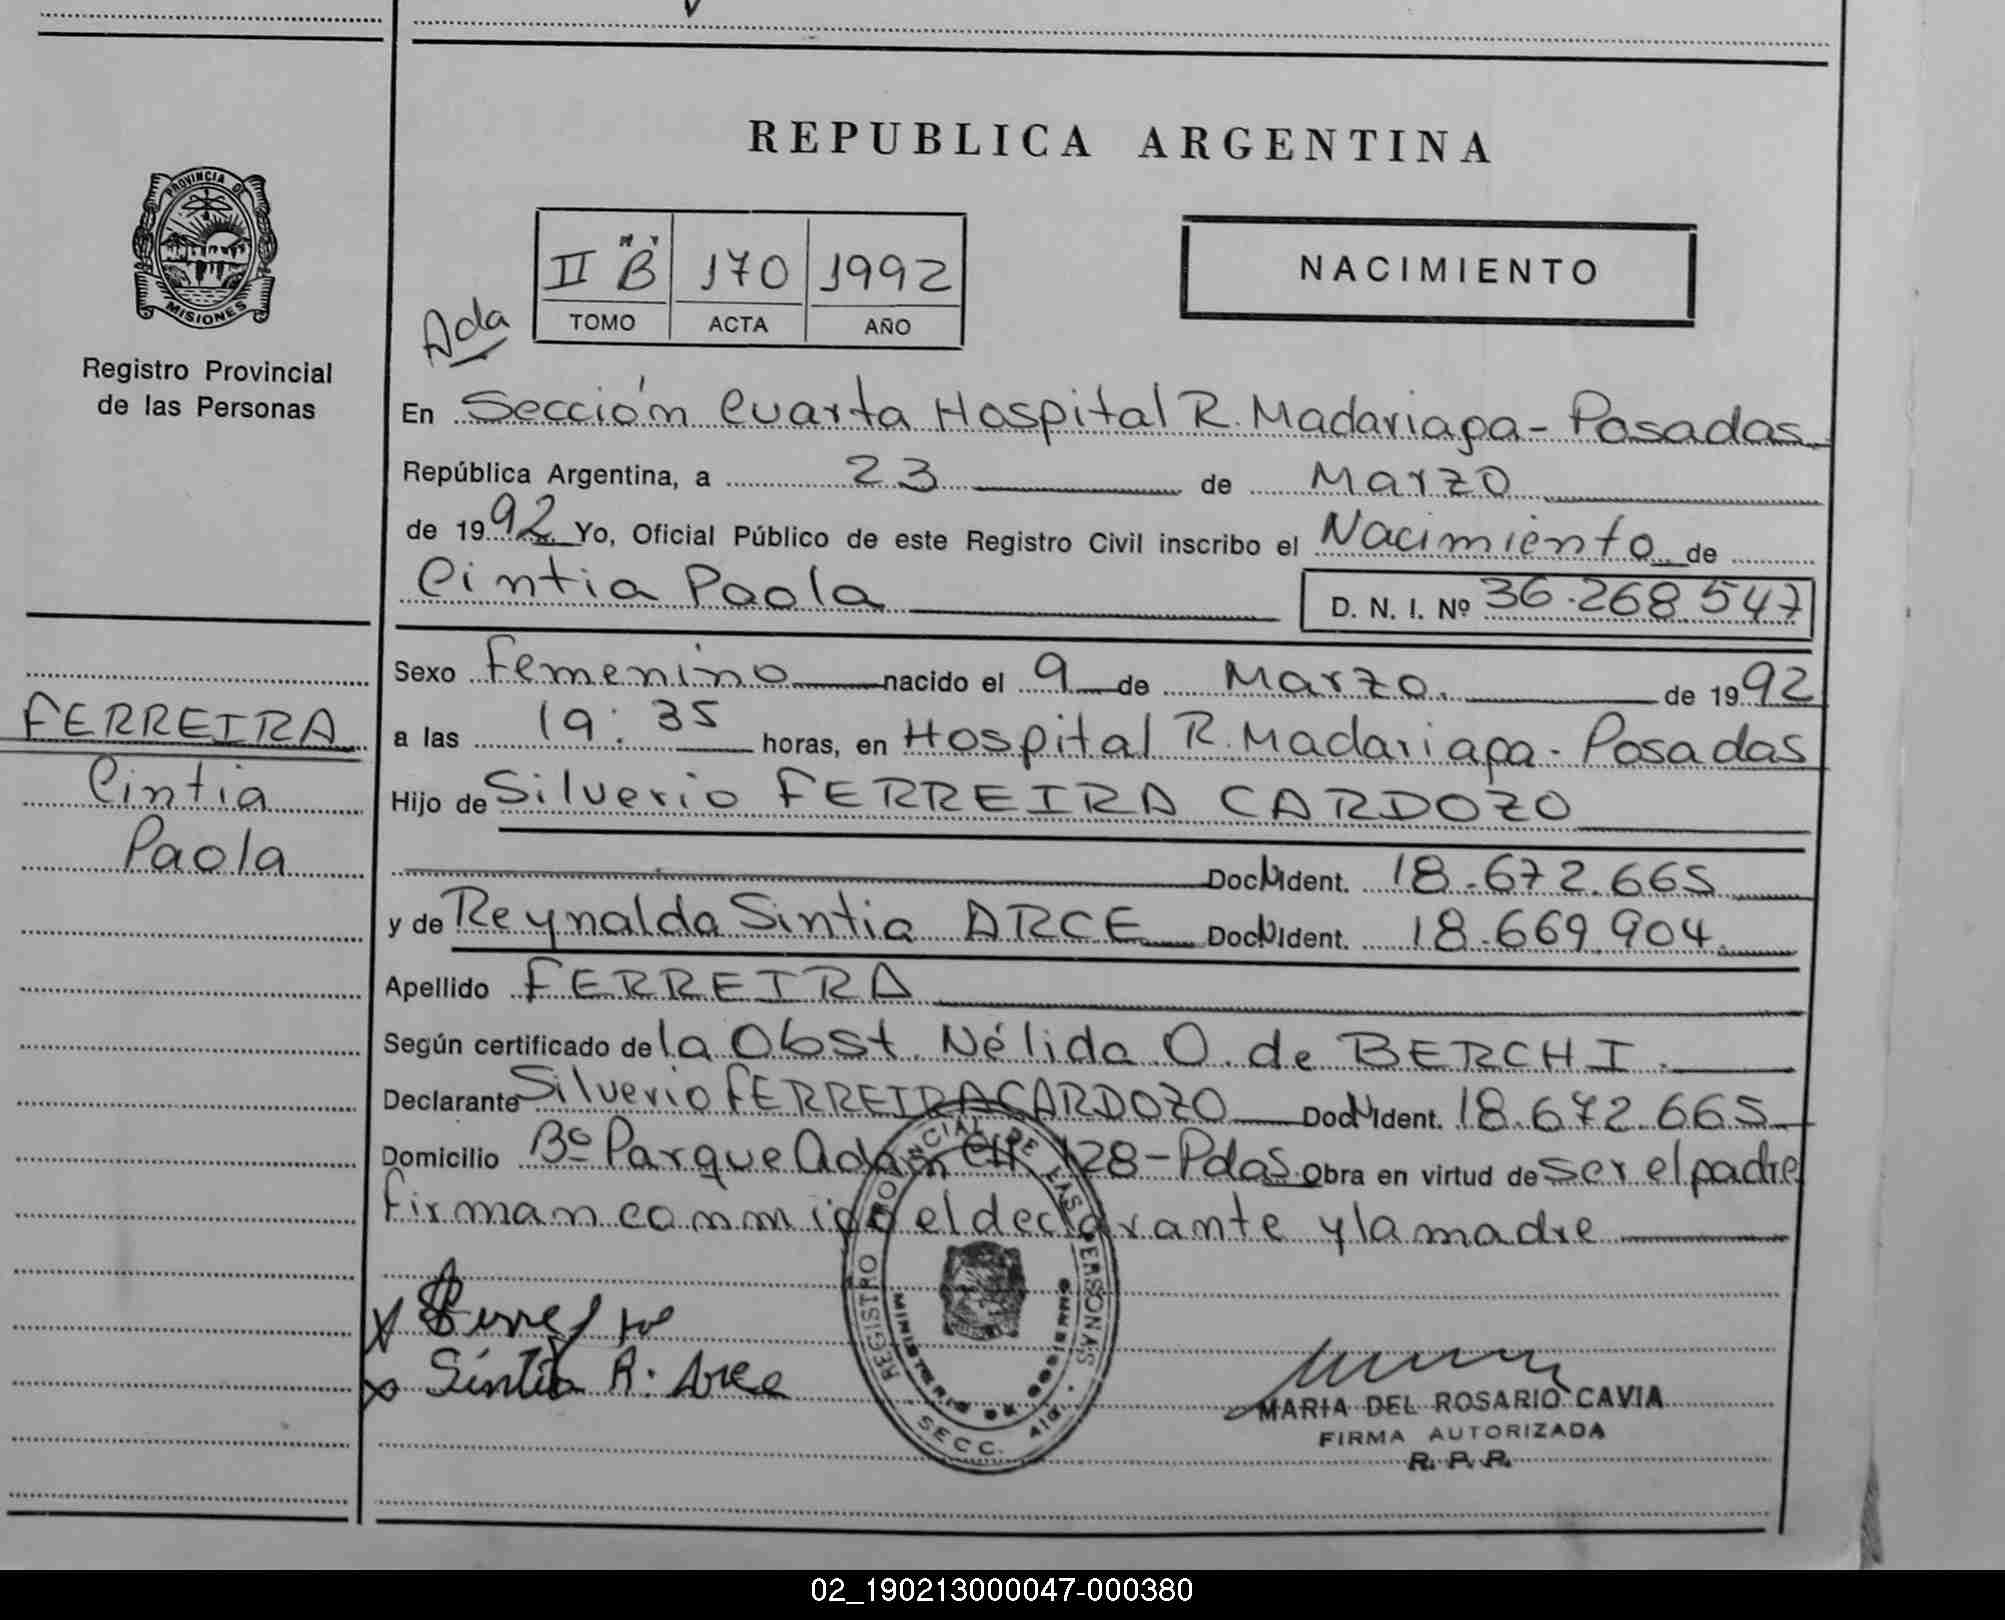 REPUBLICA ARGENTINA
PROVINCIA DE
MISIONES
Registro Provincial
de las Personas
II "B" 170 1992
TOMO ACTA AÑO
NACIMIENTO
Ada
En Sección Cuarta Hospital R. Madariaga - Posadas
República Argentina, a 23 de Marzo
de 1992 Yo, Oficial Público de este Registro Civil inscribo el Nacimiento de
Cintia Paola D. N. I. Nº 36.268.547
Sexo Femenino nacido el 9 de Marzo. de 1992
FERREIRA
Cintia
Paola
a las 19:35 horas, en Hospital R. Madariaga - Posadas
Hijo de Silverio FERREIRA CARDOZO
Doc. Ident. 18.672.665
y de Reynalda Sintia ARCE Doc. Ident. 18.669.904
Apellido FERREIRA
Según certificado de la Obst. Nélida O. de BERCHI.
Declarante Silverio FERREIRA CARDOZO Doc. Ident. 18.672.665
Domicilio Bº Parque Adam CH 128 - Pdas. Obra en virtud de ser el padre
firman conmigo el declarante y la madre
REGISTRO PROVINCIAL DE LAS PERSONAS
MINISTERIO DE GOBIERNO
SECC. 4ta
Sintia R. Arce
MARIA DEL ROSARIO CAVIA
FIRMA AUTORIZADA
R. P. P.
02_190213000047-000380